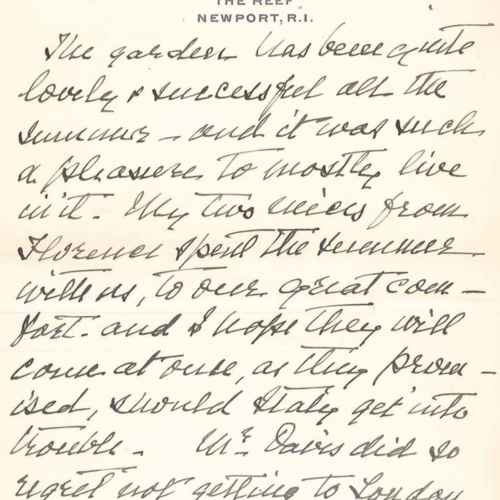 THE REEF
NEWPORT, R.I.
The garden has been quite
lovely & successful all the
summer — and it was such
a pleasure to mostly live
in it. My two nieces from
Florence spent the summer
with us, to our great com-
fort. and I hope they will
come at once, as they prom-
ised, should Italy get into
trouble. Mr. Davis did so
regret not getting to London